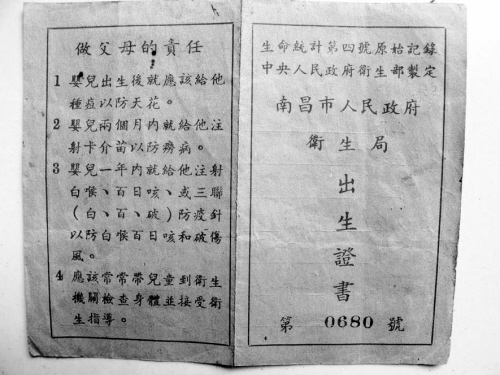 做父母的責任
1 嬰兒出生後就應該給他
種痘以防天花。
2 嬰兒兩個月內就給他注
射卡介苗以防癆病。
3 嬰兒一年內就給他注射
白喉、百日咳、或三聯
(白、百、破)防疫針
以防白喉百日咳和破傷
風。
4 應該常常帶兒童到衛生
機關檢查身體並接受衛
生指導。
生命統計第四號原始記錄
中央人民政府衛生部製定
南昌市人民政府
衛生局
出
生
證
書
第 0680 號